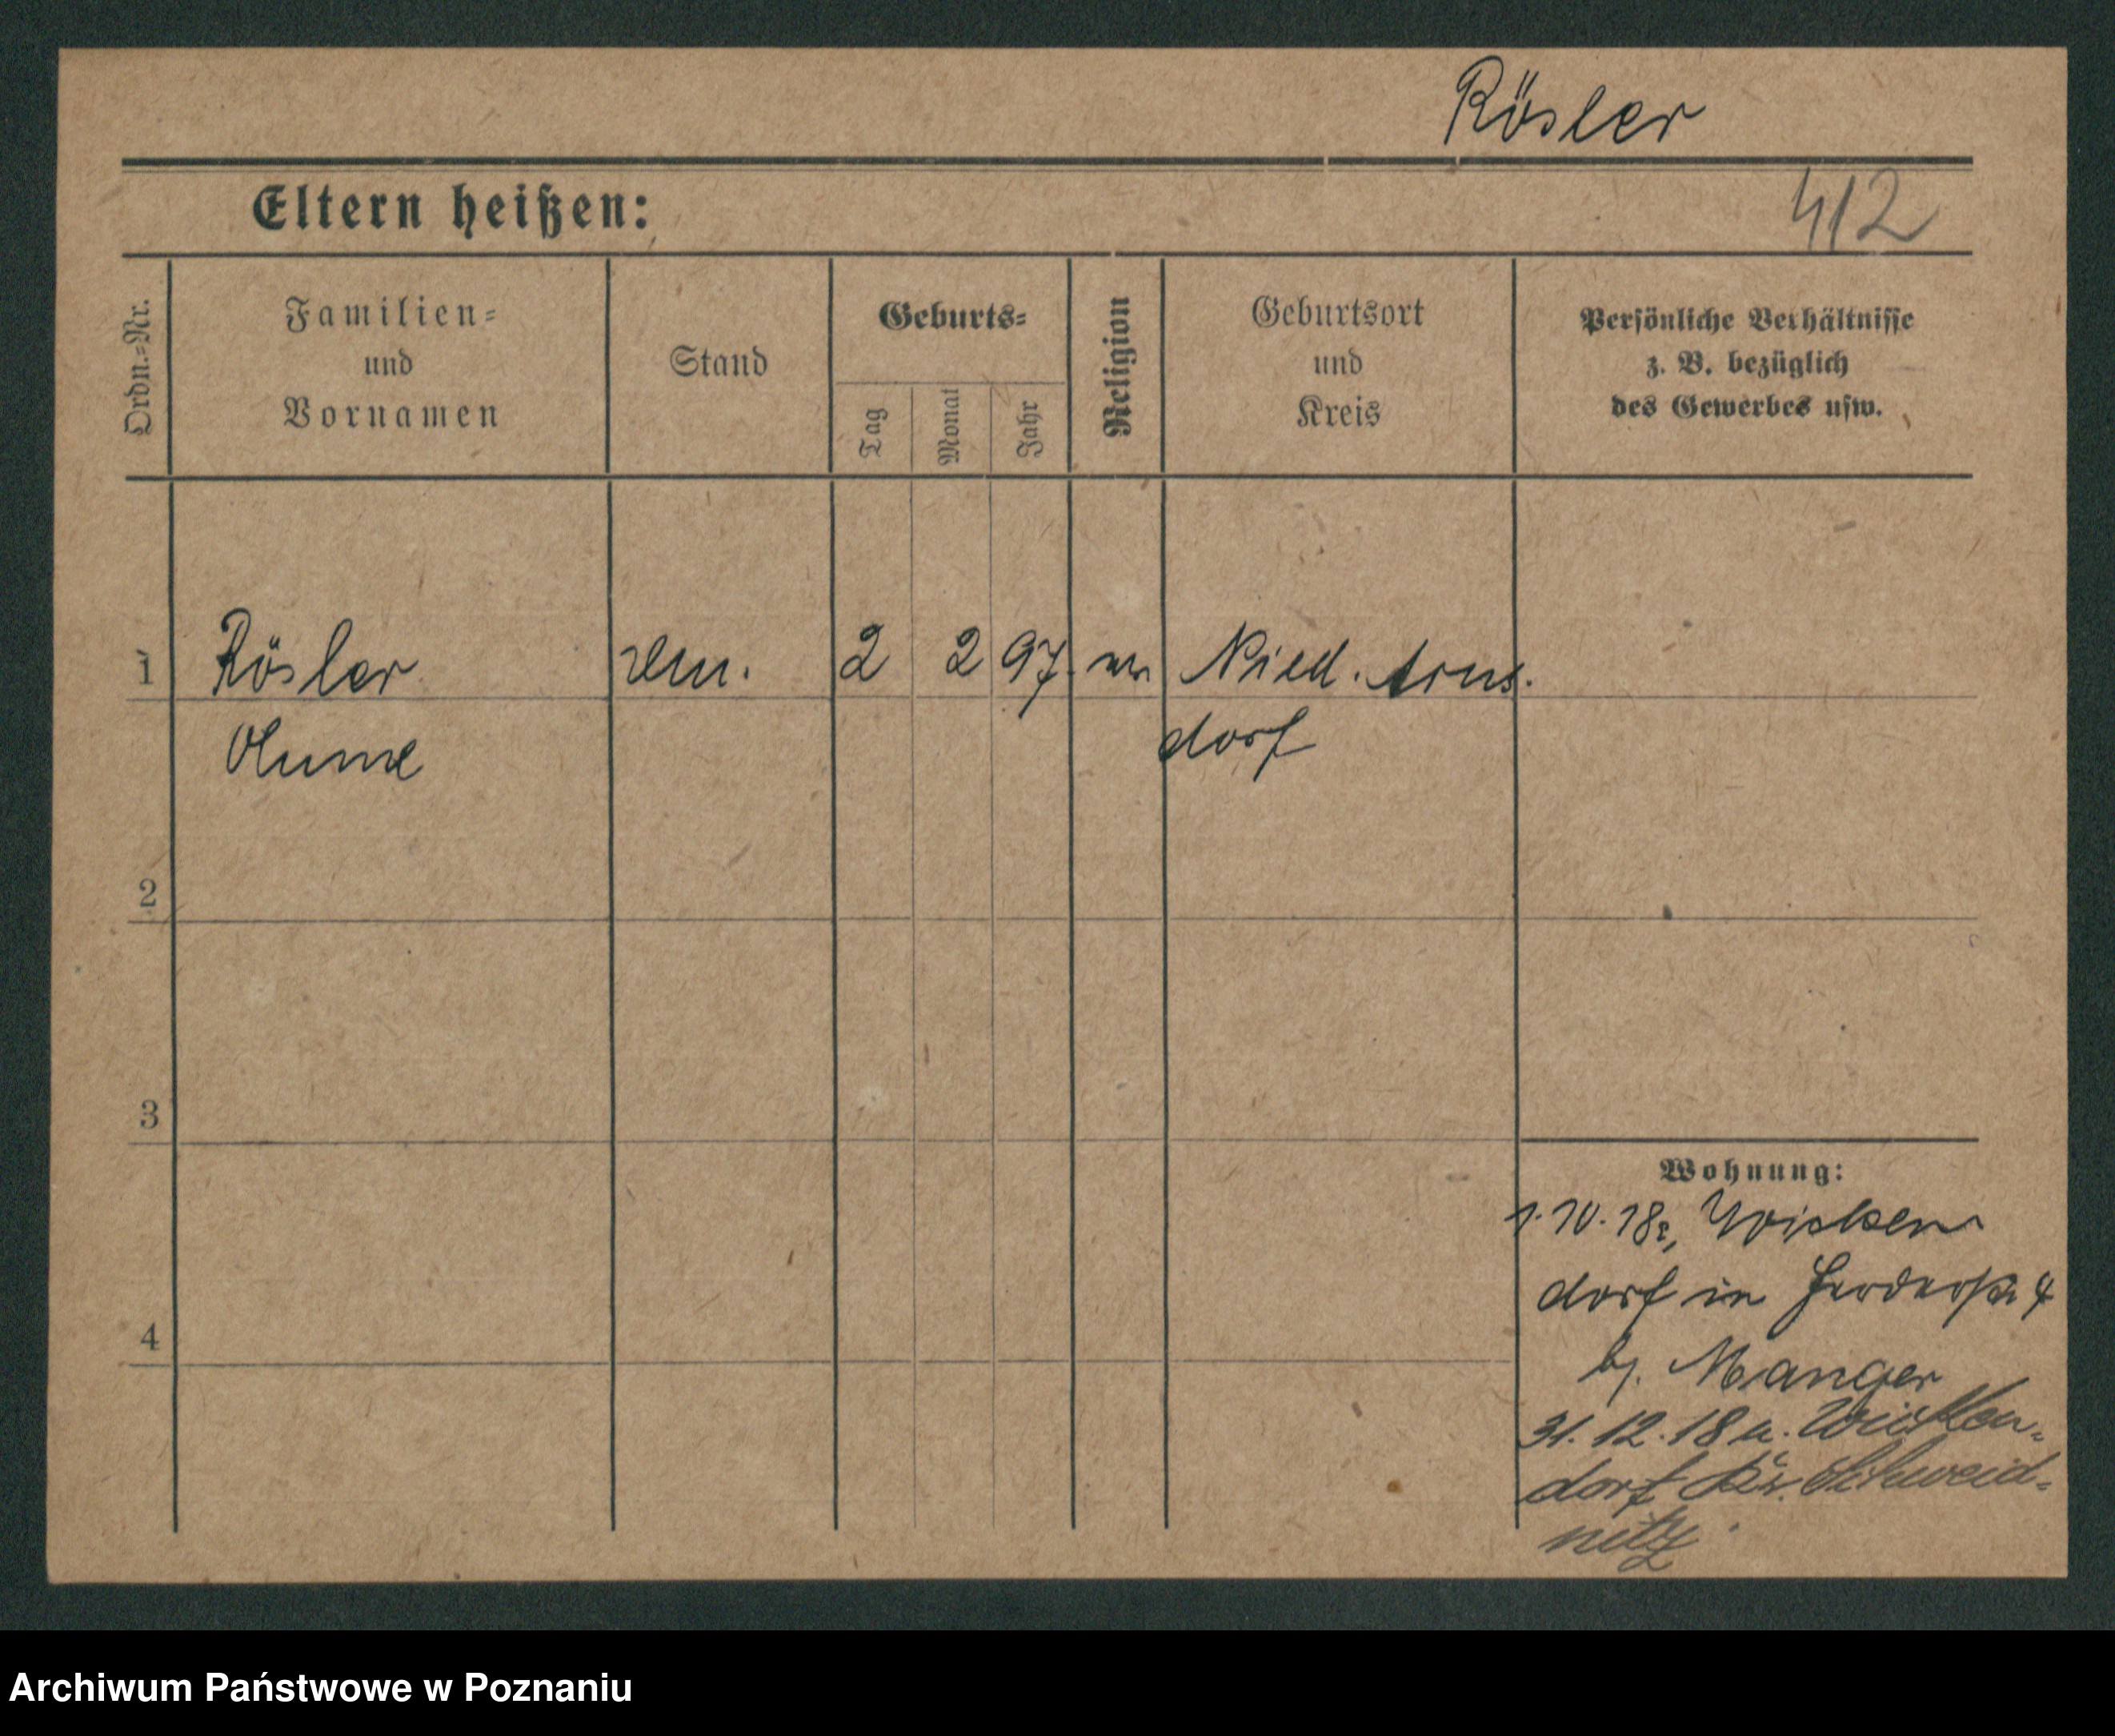 Rösler
412
Eltern heißen:
Ordn.=Nr.
Familien=
und
Vornamen
Stand
Geburts=
Tag
Monat
Jahr
Religion
Geburtsort
und
Kreis
Persönliche Verhältnisse
z. B. bezüglich
des Gewerbes usw.
1 Rösler 2 2 97. Nied. Arns.
dorf
2
3
4
Wohnung:
1. 10. 18 Wicken
dorf in 4
b/. Manger
31. 12. 18 n. Wicken=
dorf Krs. Schweid=
nitz
Archiwum Państwowe w Poznaniu